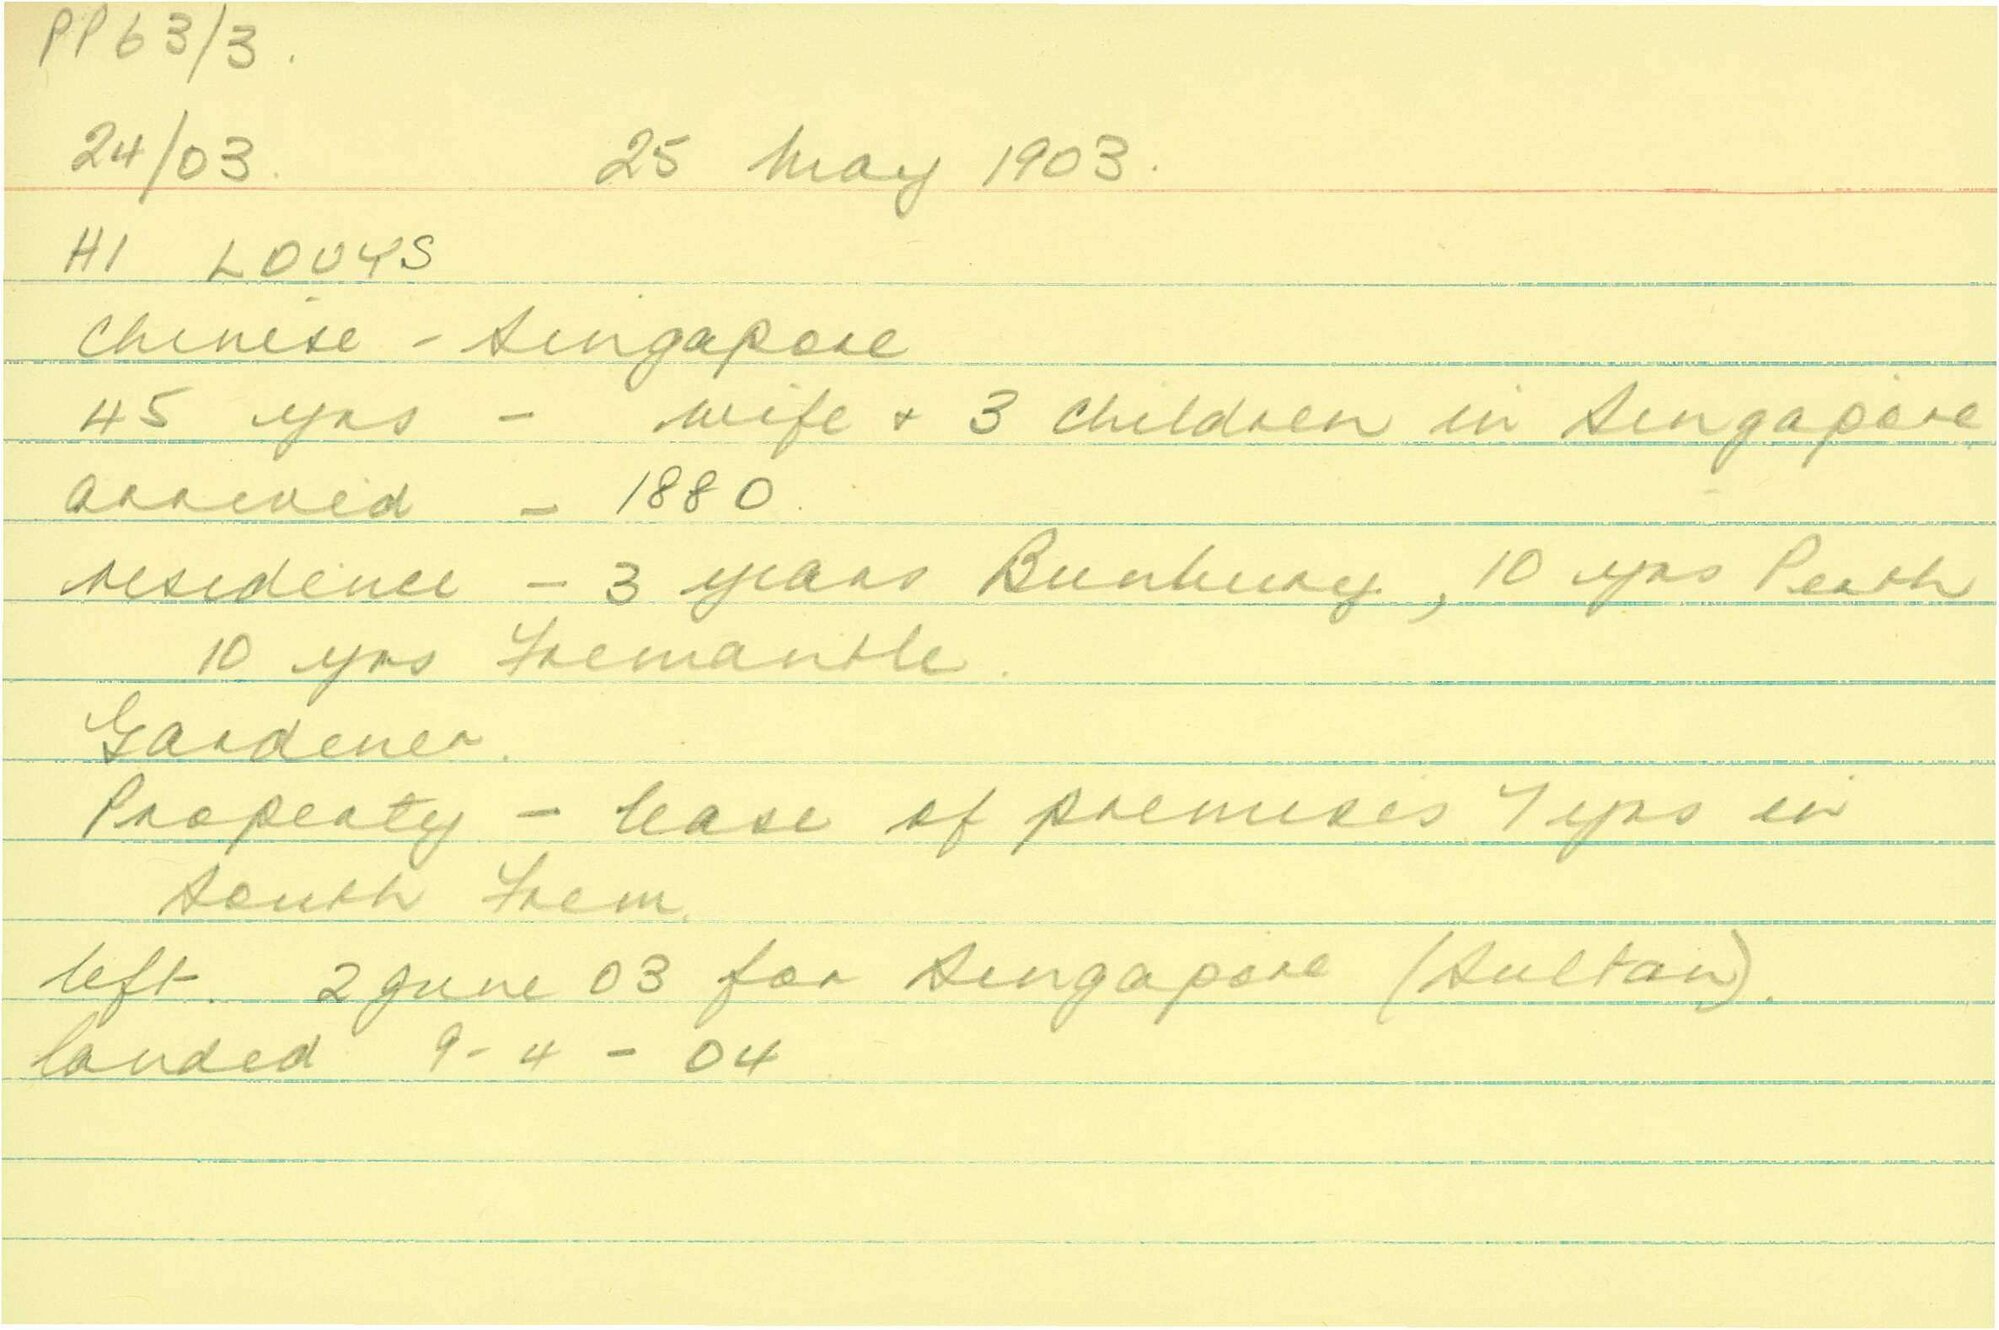 PP63/3.
24/03. 25 May 1903.
HI LOUYS
Chinese - Singapore
45 yrs - wife + 3 children in Singapore
arrived - 1880.
residence - 3 years Bunbury, 10 yrs Perth
10 yrs Fremantle.
Gardener.
Property - lease of premises 7 yrs in
South Frem.
left. 2 June 03 for Singapore (Sultan).
landed 9-4-04